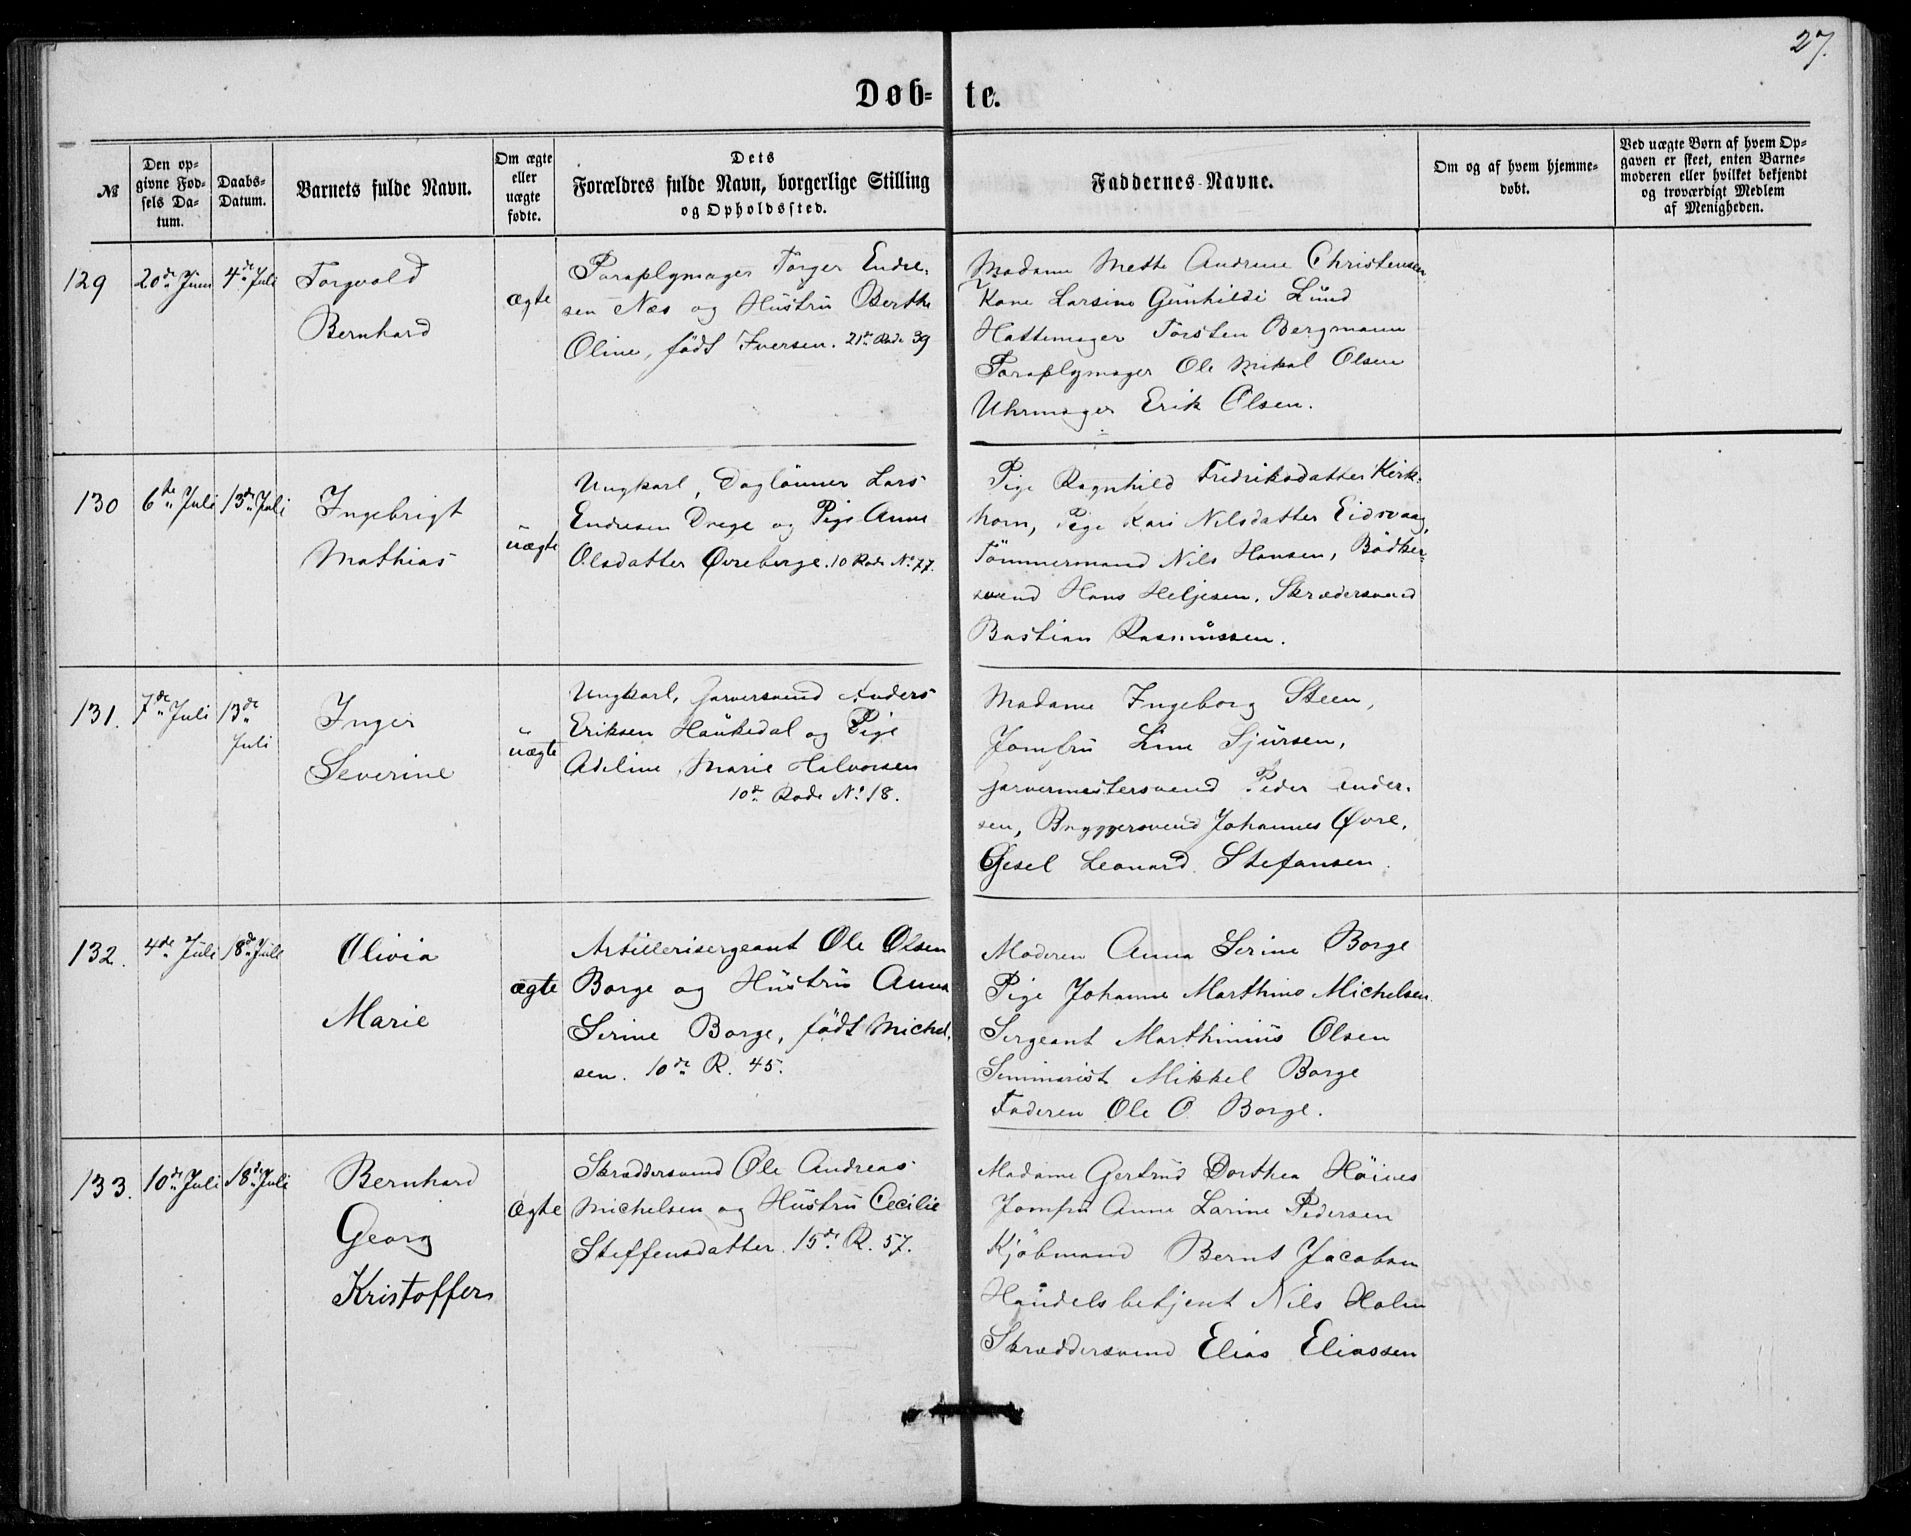 27.
Døb- te.
№
Den op-
givne Fød-
sels Da-
tum.
Daabs-
Datum.
Barnets fulde Navn.
Om ægte
eller
uægte
fødte.
Dets
Forældres fulde Navn, borgerlige Stilling
og Opholdssted.
Faddernes Navne.
Om og af hvem hjemme-
døbt.
Ved uægte Børn af hvem Op-
gaven er skeet, enten Barne-
moderen eller hvilket bekjendt
og troværdigt Medlem
af Menigheden.
129
20de Juni
4de Juli
Torgvald
Bernhard
ægte
Paraplymager Torger Endre-
sen Næs og Hustru Berthe
Oline, født Iversen. 21de Rode 39
Madame Mette Andrine Christensen
Kone Larsine Gunhilde Lund
Hattemager Torsten Bergmann
Paraplymager Ole Mikal Olsen
Uhrmager Erik Olsen.
130
6te Juli
13de Juli
Ingebrigt
Mathias
uægte
Ungkarl, Daglønner Lars
Endresen Drege og Pige Anne
Olsdatter Øvreberge. 10 Rode No 77.
Pige Ragnhild Fredriksdatter Kirk-
horn, Pige Kari Nilsdatter Eidsvaag,
Tömmermand Nils Hansen, Bödker-
svend Hans Heljesen, Skrædersvend
Bastian Rasmussen.
131.
7de Juli
13de
Juli
Inger
Severine
uægte
Ungkarl, Garversvend Anders
Eriksen Haukedal og Pige
Adeline Marie Halvorsen
10de Rode No 18.
Madame Ingeborg Steen,
Jomfru Line Sjursen,
Garvermestersvend Peder Ander-
sen, Bryggersvend Johannes Øvre,
Gesel Leonard Stefansen.
132.
4de Juli
18de Juli
Olivia
Marie
ægte
Artillerisergeant Ole Olsen
Borge og Hustru Anna
Serine Borge, født Michel-
sen. 10de R. 45.
Moderen Anna Serine Borge
Pige Johanne Marthine Michelsen
Sergeant Marthinius Olsen
Seminarist Mikkel Borge
Faderen Ole O. Borge.
133.
10de Juli
18de Juli
Bernhard
Georg
Kristoffer
ægte
Skræddersvend Ole Andreas
Michelsen og Hustru Cecilie
Steffensdatter. 15de R. 57.
Madame Gertrud Dorthea Höines
Jomfru Anne Larine Pedersen
Kjöbmand Bernt Jacobsen
Handelsbetjent Nils Holm
Skræddersvend Elias Eliassen